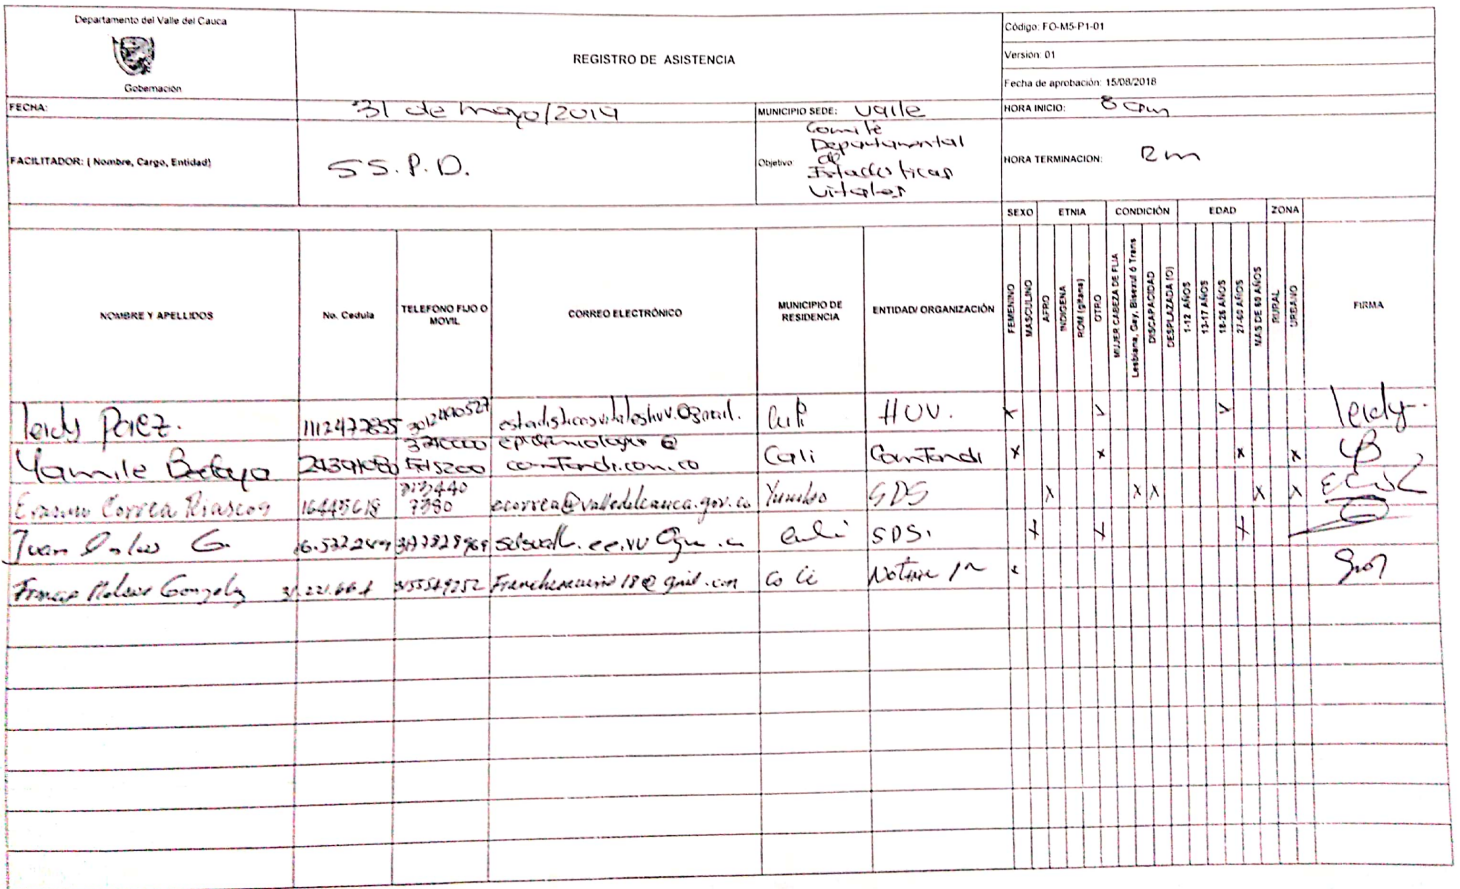 Departamento del Valle del Cauca
Gobernación
REGISTRO DE ASISTENCIA
Código: FO-M5-P1-01
Versión: 01
Fecha de aprobación: 15/08/2018
FECHA: 31 de mayo/2019
MUNICIPIO SEDE: Valle
HORA INICIO: 8 am
FACILITADOR: ( Nombre, Cargo, Entidad) S.S.P.D.
Objetivo: Comité
Departamental
de
Estadisticas
Vitales
HORA TERMINACION:
SEXO ETNIA CONDICIÓN EDAD ZONA
NOMBRE Y APELLIDOS
No. Cedula
TELEFONO FIJO O
MOVIL
CORREO ELECTRÓNICO
MUNICIPIO DE
RESIDENCIA
ENTIDAD/ ORGANIZACIÓN
FEMENINO
MASCULINO
AFRO
INDIGENA
ROM (gitana)
OTRO
MUJER CABEZA DE FLIA
Lesbiana, Gay, Bisexul ó Trans
DISCAPACIDAD
DESPLAZADA (O)
1-12 AÑOS
13-17 AÑOS
18-26 AÑOS
27-60 AÑOS
MAS DE 60 AÑOS
RURAL
URBANO
FIRMA
leidy Paez. 1112472855 3012490527 Cali HUV. x x x leidy
3340000 epidemiologia @
Yamile 5145200 comfandi.com.co Cali Comfandi x x x x
313440
Erasmo Correa Riascos 16445618 7380 ecorrea@valledelcauca.gov.co Yumbo SDS x x x x x
Juan Carlos G. 3177829969 Cali SDS. x x x
Gonzalez 31.221.664 3155549252 Cali x